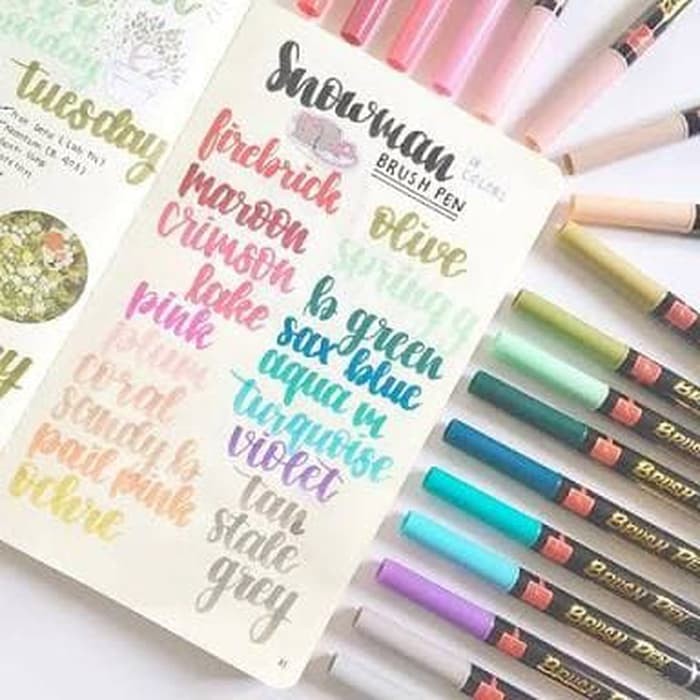 tuesday
Snowman
BRUSH PEN
18 COLORS
firebrick
maroon
crimson
lake
pink
plum
coral
sandy b
pail pink
ochre
olive
spring g
b green
sax blue
aqua m
turquoise
violet
tan
stale
grey
BRUSH PEN
BRUSH PEN
BRUSH PEN
BRUSH PEN
BRUSH PEN